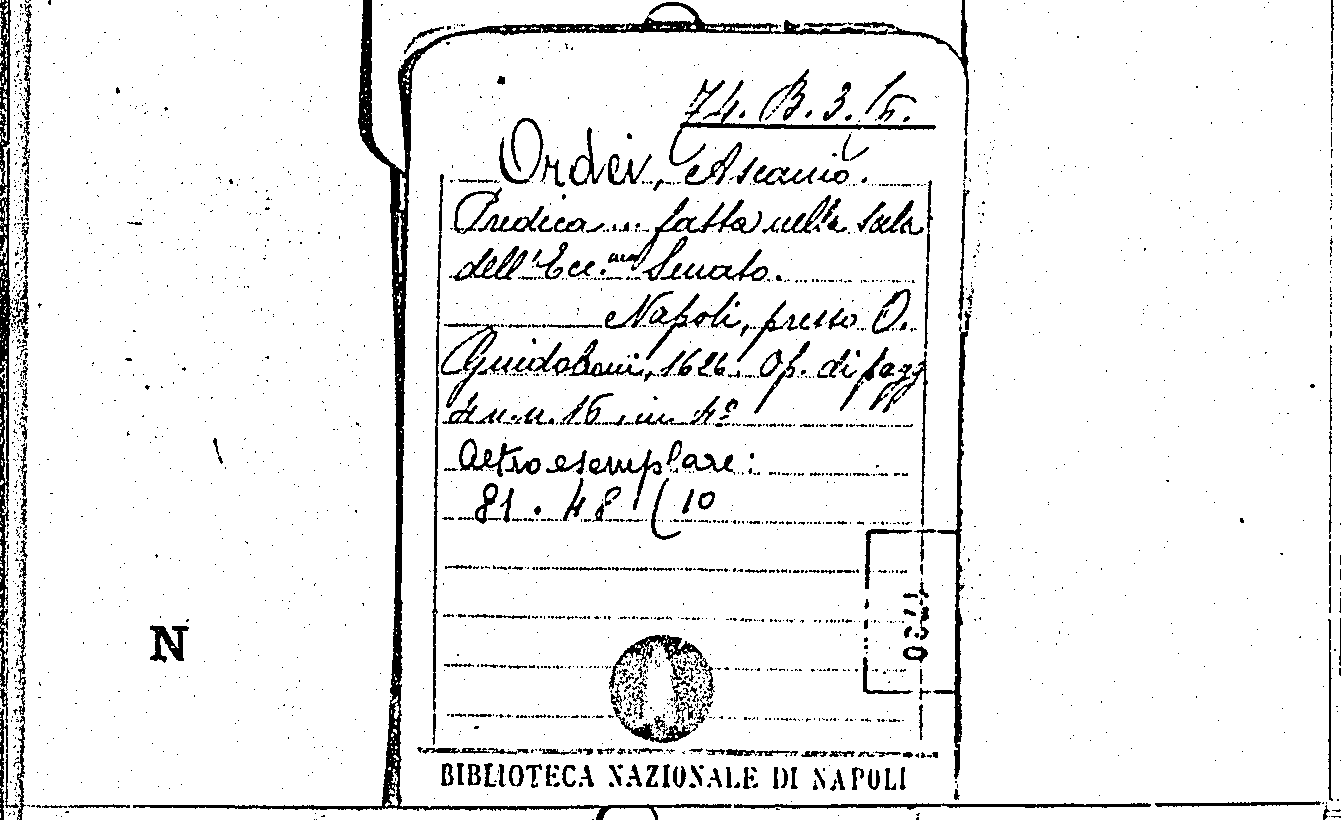 74. B. 3. (5.
Ordei, Ascanio.
Predica... fatta nella sala
dell'Ecc.mo Senato.
Napoli, presso O.
Guidoboni, 1626. Op. di pagg
4 n.n. 15. in 4º
Altro esemplare:
81. 48 (10
N
BIBLIOTECA NAZIONALE DI NAPOLI